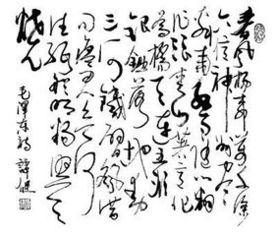 春风杨柳万千条
六亿神州尽舜
尧红雨随心翻
作浪青山着意化
为桥天连五岭
银锄落地动
三河铁臂摇借
问瘟君欲何
往纸船明烛照天
烧
毛泽东诗